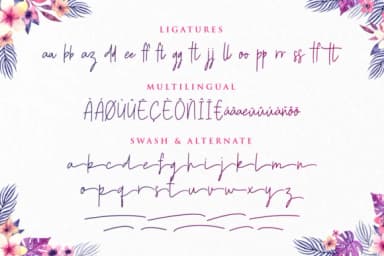 LIGATURES
aa bb az dd ee ff fl gg tl jj ll oo pp rr ss tf tt
MULTILINGUAL
SWASH & ALTERNATE
a b c d e f g h i j k l m n
o p q r s t u v w x y z